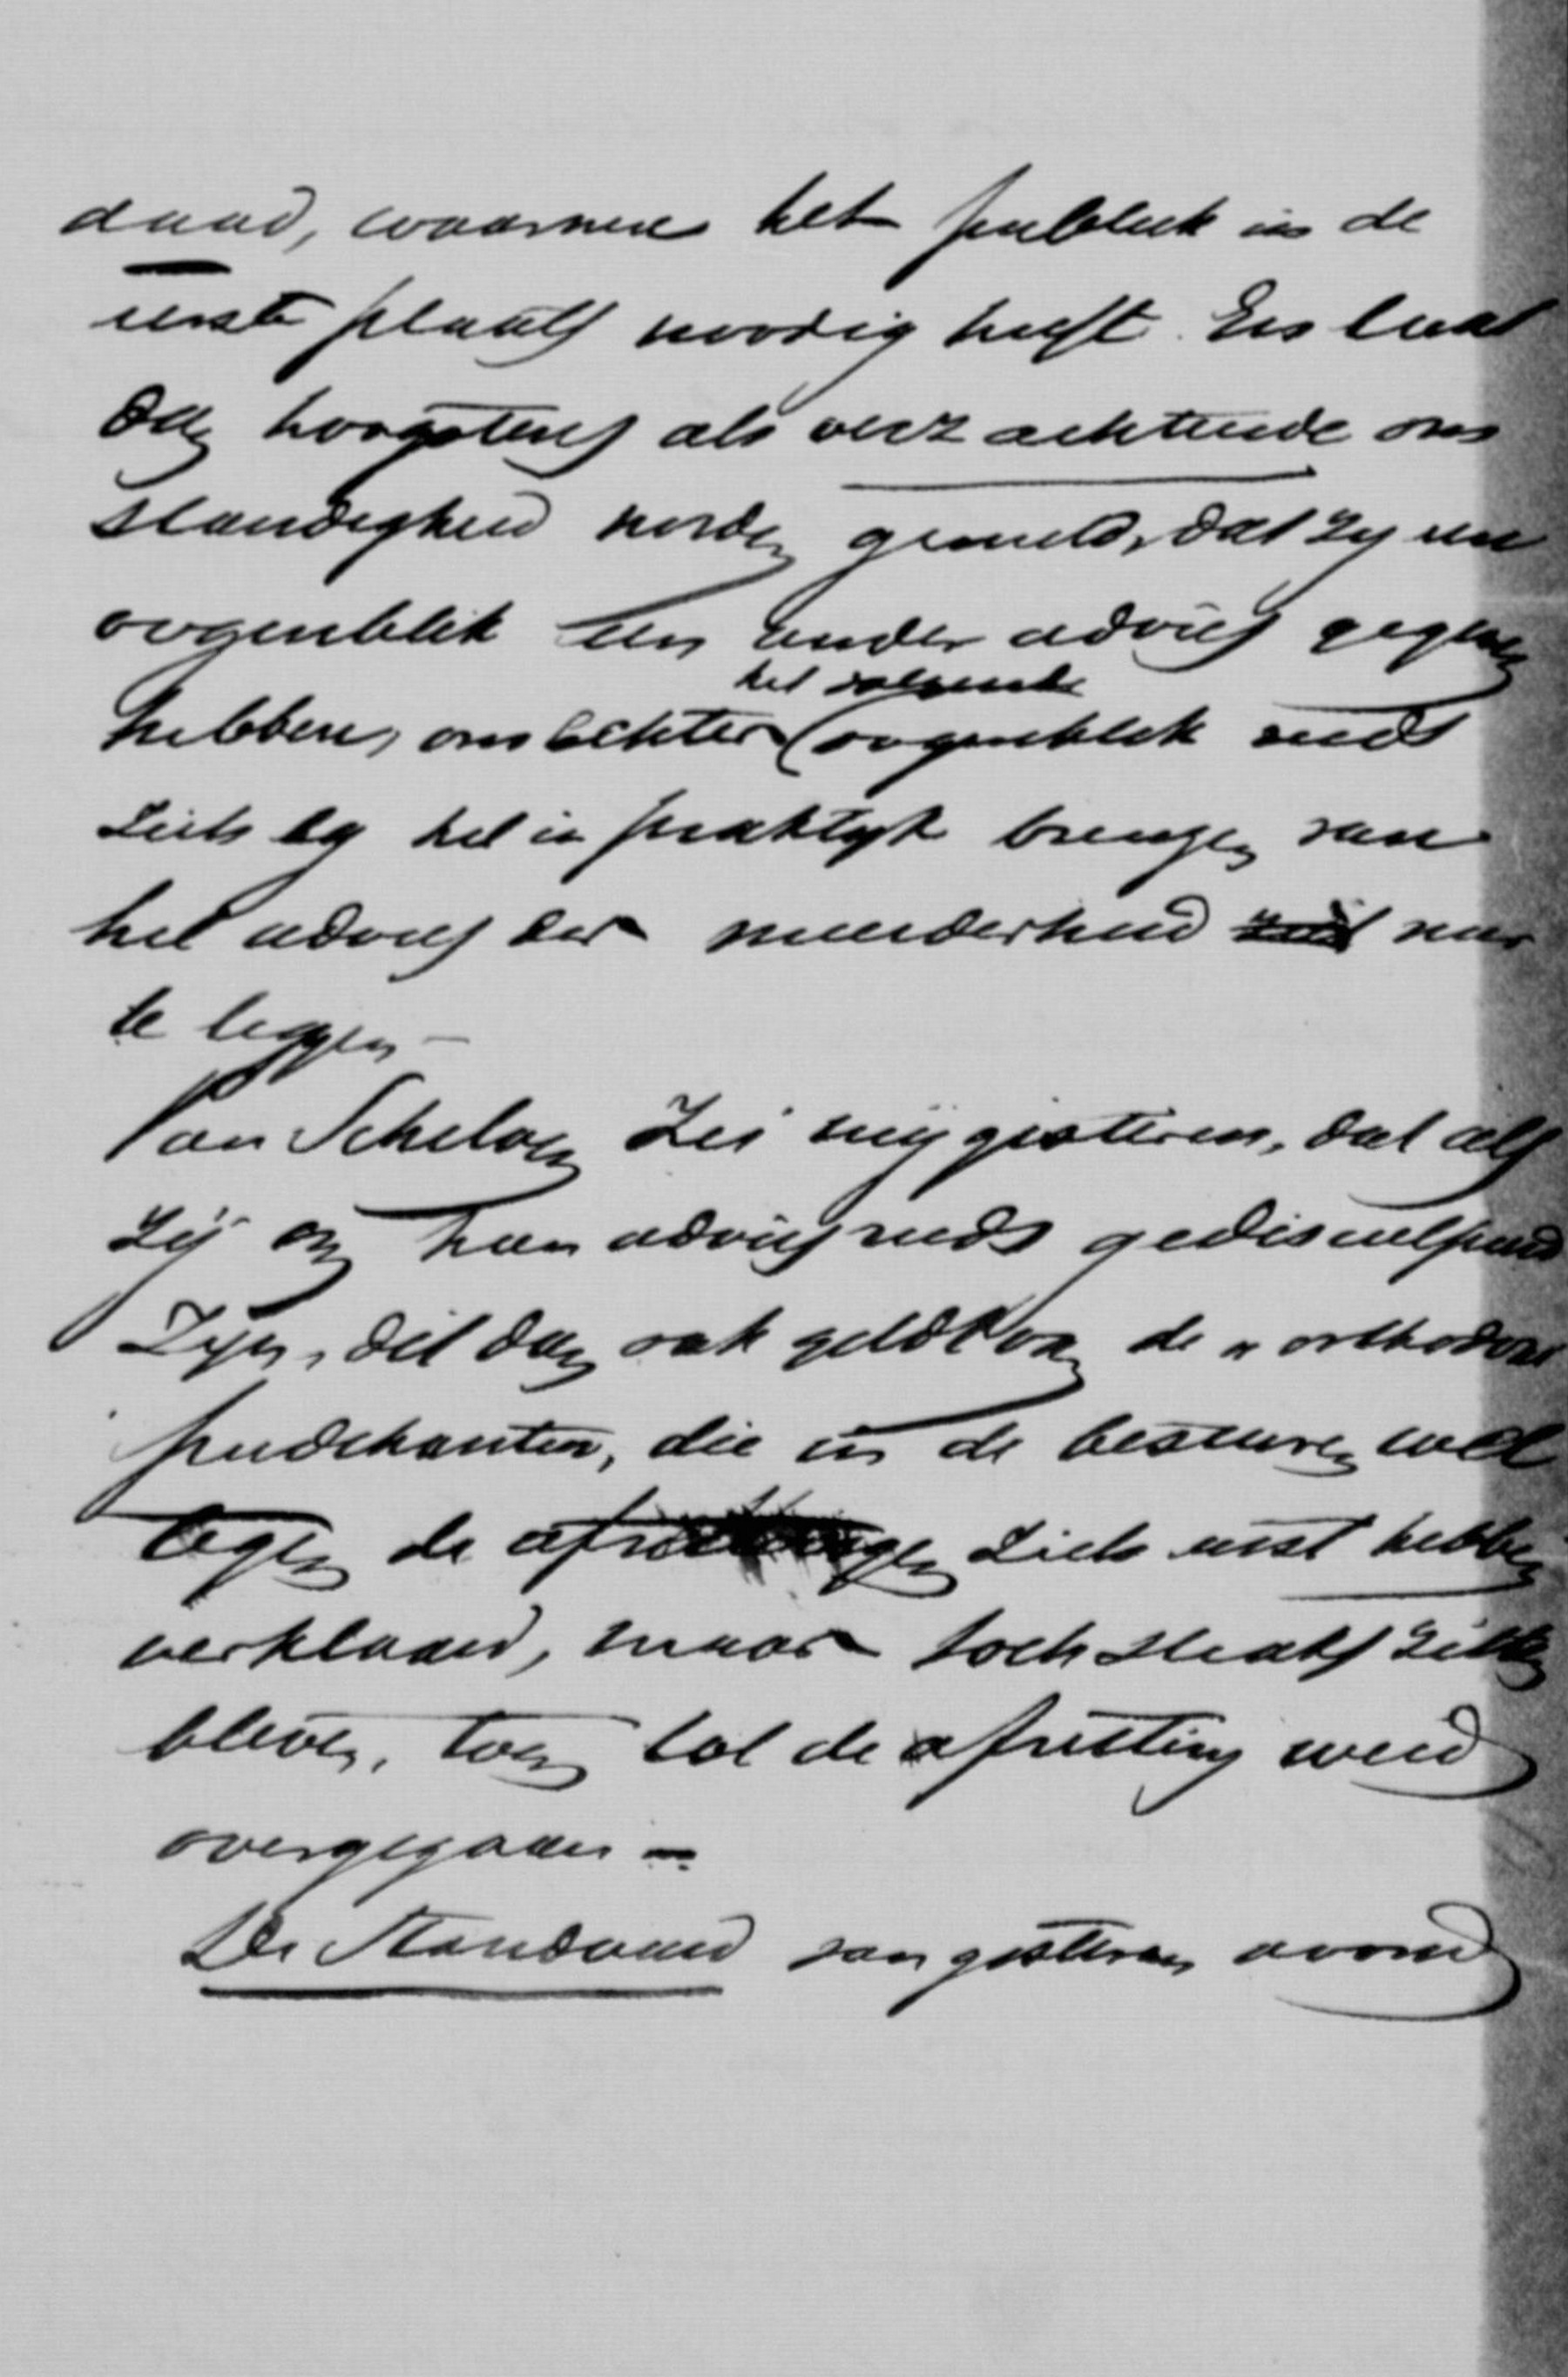 daad, waarmee het publiek in de
eerste plaats noodig heeft. En laat
dan hoogstens als verzachtende om
standigheid worden gemeld, dat zij een
oogenblik een ander advies gegeven
hebben, om echter het volgende oogenblik reeds
zich bij het in praktijk brengen van
het advies der meerderheid neer
te leggen –
Van Schelven zei mij gisteren, dat als
zij om hun advies reeds gedisculpeerd
zijn, dit dan ook geldt van de „orthodoxe
predikanten, die in de besturen wel
tegen de afzettingen zich eerst hebben
verklaard, maar toch straks zitten
bleven, toen tot de afzetting werd
overgegaan –
De Standaard van gisteren avond